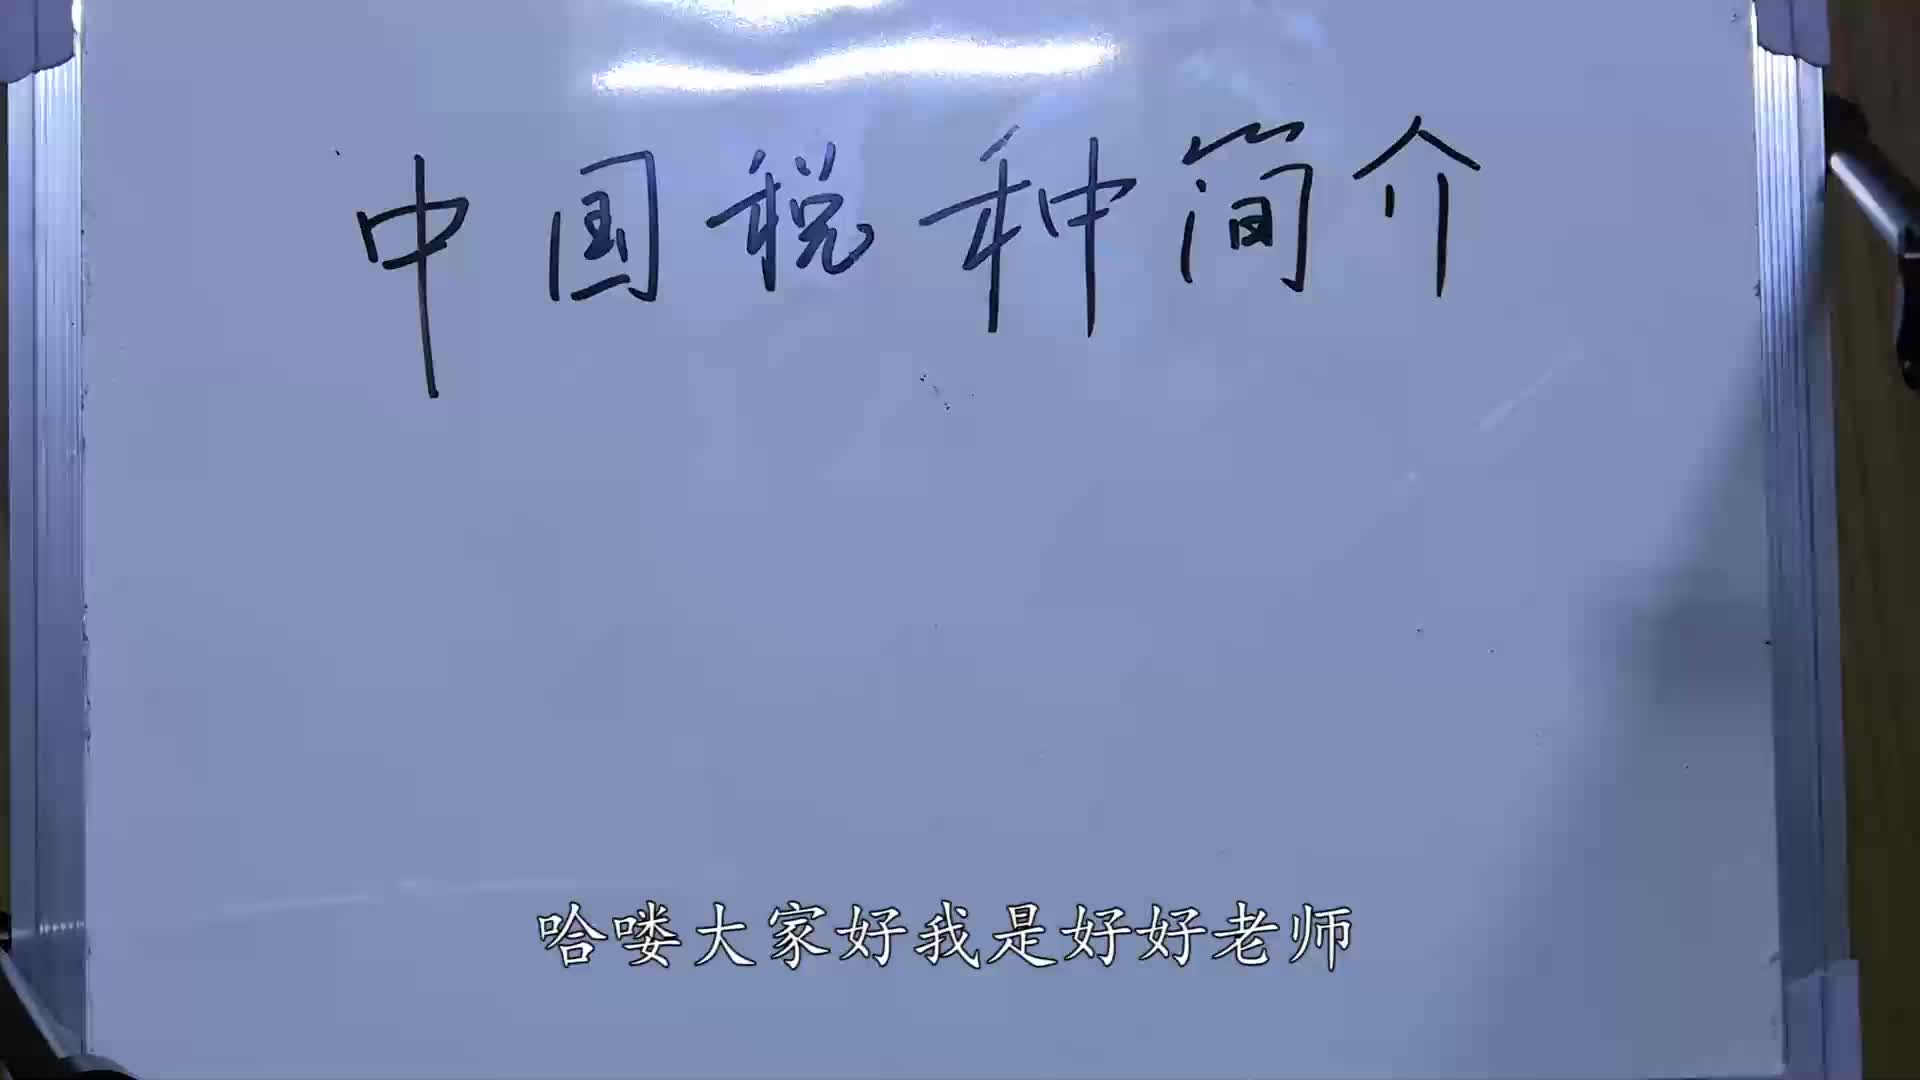 中国税种简介
哈喽大家好我是好好老师